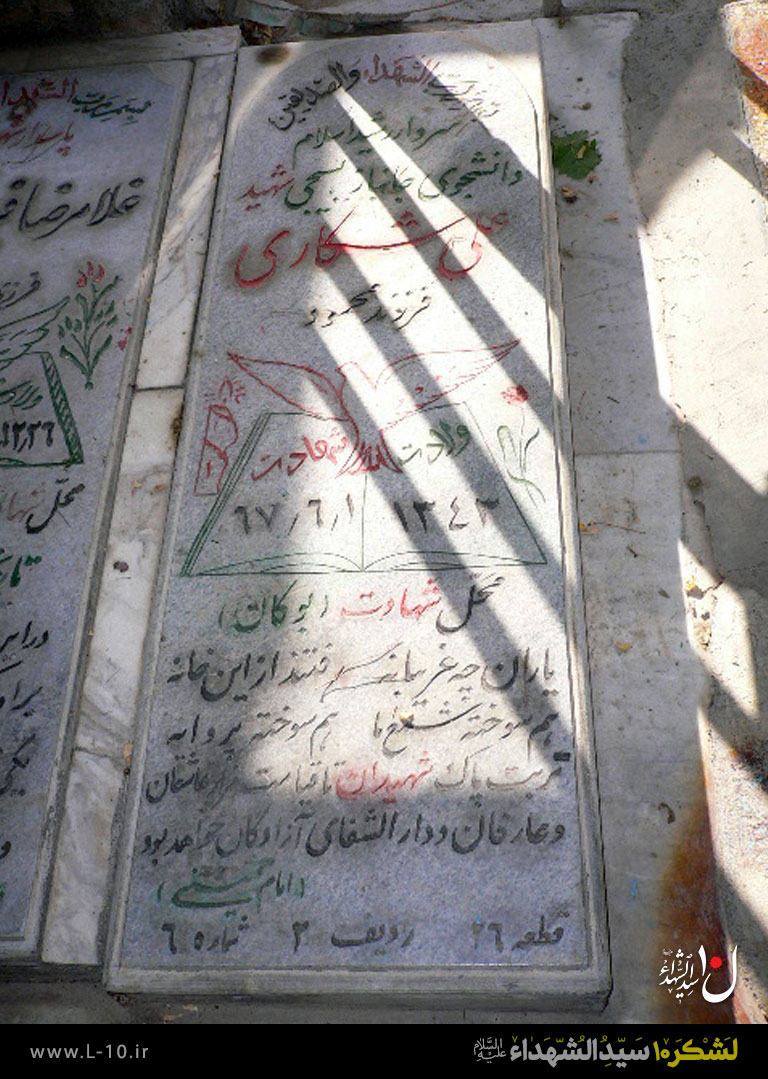 الشهداء والصدیقین
سردار رشید اسلام
دانشجوی جانباز بسیجی شهید
علی شکاری
فرزند محمود
ولادت شهادت
۱۳۴۳ ۶۷/۶/۱
محل شهادت (بوکان)
یاران چه غریبانه رفتند از این خانه
هم سوخته شمع ما هم سوخته پروانه
تربت پاک شهیدان تا قیامت مزار عاشقان
و عارفان و دارالشفای آزادگان خواهد بود
(امام خمینی)
قطعه ۲۶ ردیف ۲ شماره ۶
پاسدار
غلامرضا
۱۳۳۶
محل شهادت
لشکر۱۰ سیدالشهداء علیه السلام
www.L-10.ir